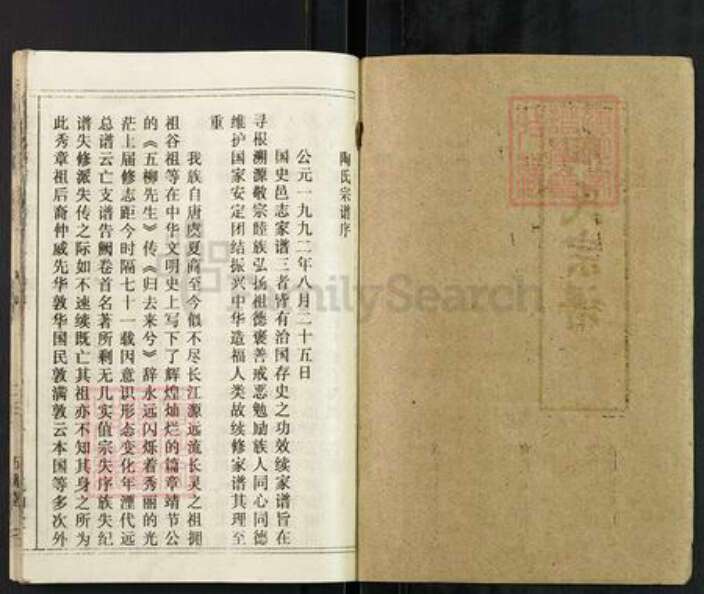 陶氏宗谱序
公元一九九二年八月二十五日
国史邑志家谱三者皆有治国存史之功效续家谱旨在
寻根溯源敬宗睦族弘扬祖德褒善戒恶勉励族人同心同德
维护国家安定团结振兴中华造福人类故续修家谱其理至
重
我族自唐虞夏商至今似不尽长江源远流长灵之祖拥
祖谷祖等在中华文明史上写下了辉煌灿烂的篇章靖节公
的《五柳先生》传《归去来兮》辞永远闪烁着秀丽的光
茫上届修志距今时隔七十一载因意识形态变化年湮代远
总谱云亡支谱告阙卷首名著所剩无几实值宗失序族失纪
谱失修派失传之际如不速续既亡其祖亦不知其身之所为
此秀章祖后裔仲威先华敦华国民敦满敦云本国等多次外
氏宗谱
FamilySearch